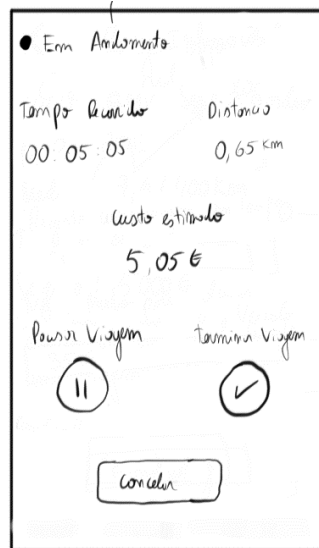 Em Andamento
Tempo Decorrido
Distancia
00:05:05
0,65 km
Custo estimado
5,05€
Pausar Viagem
Terminar Viagem
Cancelar